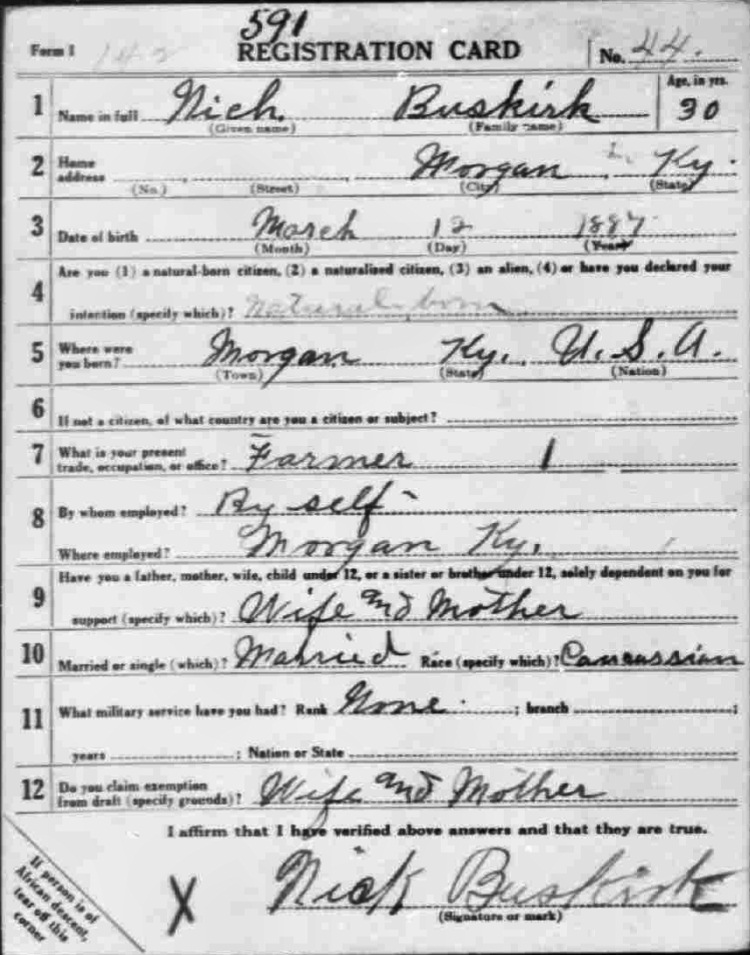 591
Form 1 142 REGISTRATION CARD No. 44.
1 Name in full Nich. Buskirk Age, in yrs. 30
(Given name) (Family name)
2 Home address Morgan, Ky.
(No.) (Street) (City) (State)
3 Date of birth March 12 1887
(Month) (Day) (Year)
4 Are you (1) a natural-born citizen, (2) a naturalized citizen, (3) an alien, (4) or have you declared your
intention (specify which)? Natural born
5 Where were you born? Morgan Ky. U.S.A.
(Town) (State) (Nation)
6 If not a citizen, of what country are you a citizen or subject?
7 What is your present trade, occupation, or office? Farmer 1
8 By whom employed? By self
Where employed? Morgan Ky.
9 Have you a father, mother, wife, child under 12, or a sister or brother under 12, solely dependent on you for
support (specify which)? Wife and Mother
10 Married or single (which)? Married Race (specify which)? Caucassian
11 What military service have you had? Rank None ; branch ;
years ; Nation or State
12 Do you claim exemption from draft (specify grounds)? Wife and Mother
I affirm that I have verified above answers and that they are true.
X Nick Buskirk
(Signature or mark)
If person is of
African descent,
tear off this
corner